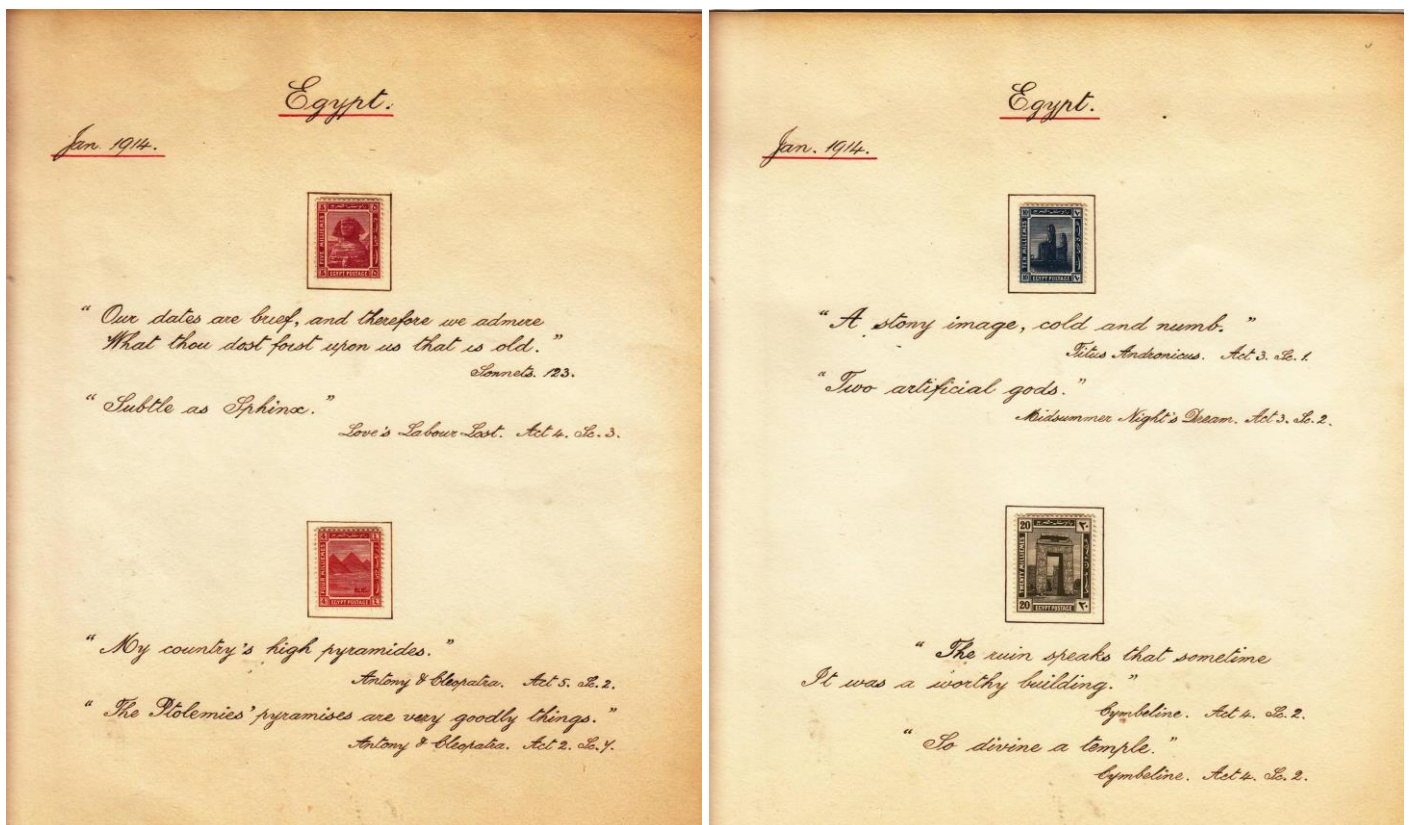 Egypt.
Jan. 1914.
FIVE MILLIEMES
EGYPT POSTAGE
" Our dates are brief, and therefore we admire
What thou dost foist upon us that is old. "
Sonnets. 123.
" Subtle as Sphinx. "
Love's Labour Lost. Act 4. Sc. 3.
4
FOUR MILLIEMES
4
EGYPT POSTAGE
" My country's high pyramides. "
Antony & Cleopatra. Act 5. Sc. 2.
" The Ptolemies' pyramises are very goodly things. "
Antony & Cleopatra. Act 2. Sc. 7.
Egypt.
Jan. 1914.
TEN MILLIEMES
EGYPT POSTAGE
" A stony image, cold and numb. "
Titus Andronicus. Act 3. Sc. 1.
" Two artificial gods. "
Midsummer Night's Dream. Act 3. Sc. 2.
20 ٢٠
TWENTY MILLIEMES
20 EGYPT POSTAGE ٢٠
" The ruin speaks that sometime
It was a worthy building. "
Cymbeline. Act 4. Sc. 2.
" So divine a temple. "
Cymbeline. Act 4. Sc. 2.